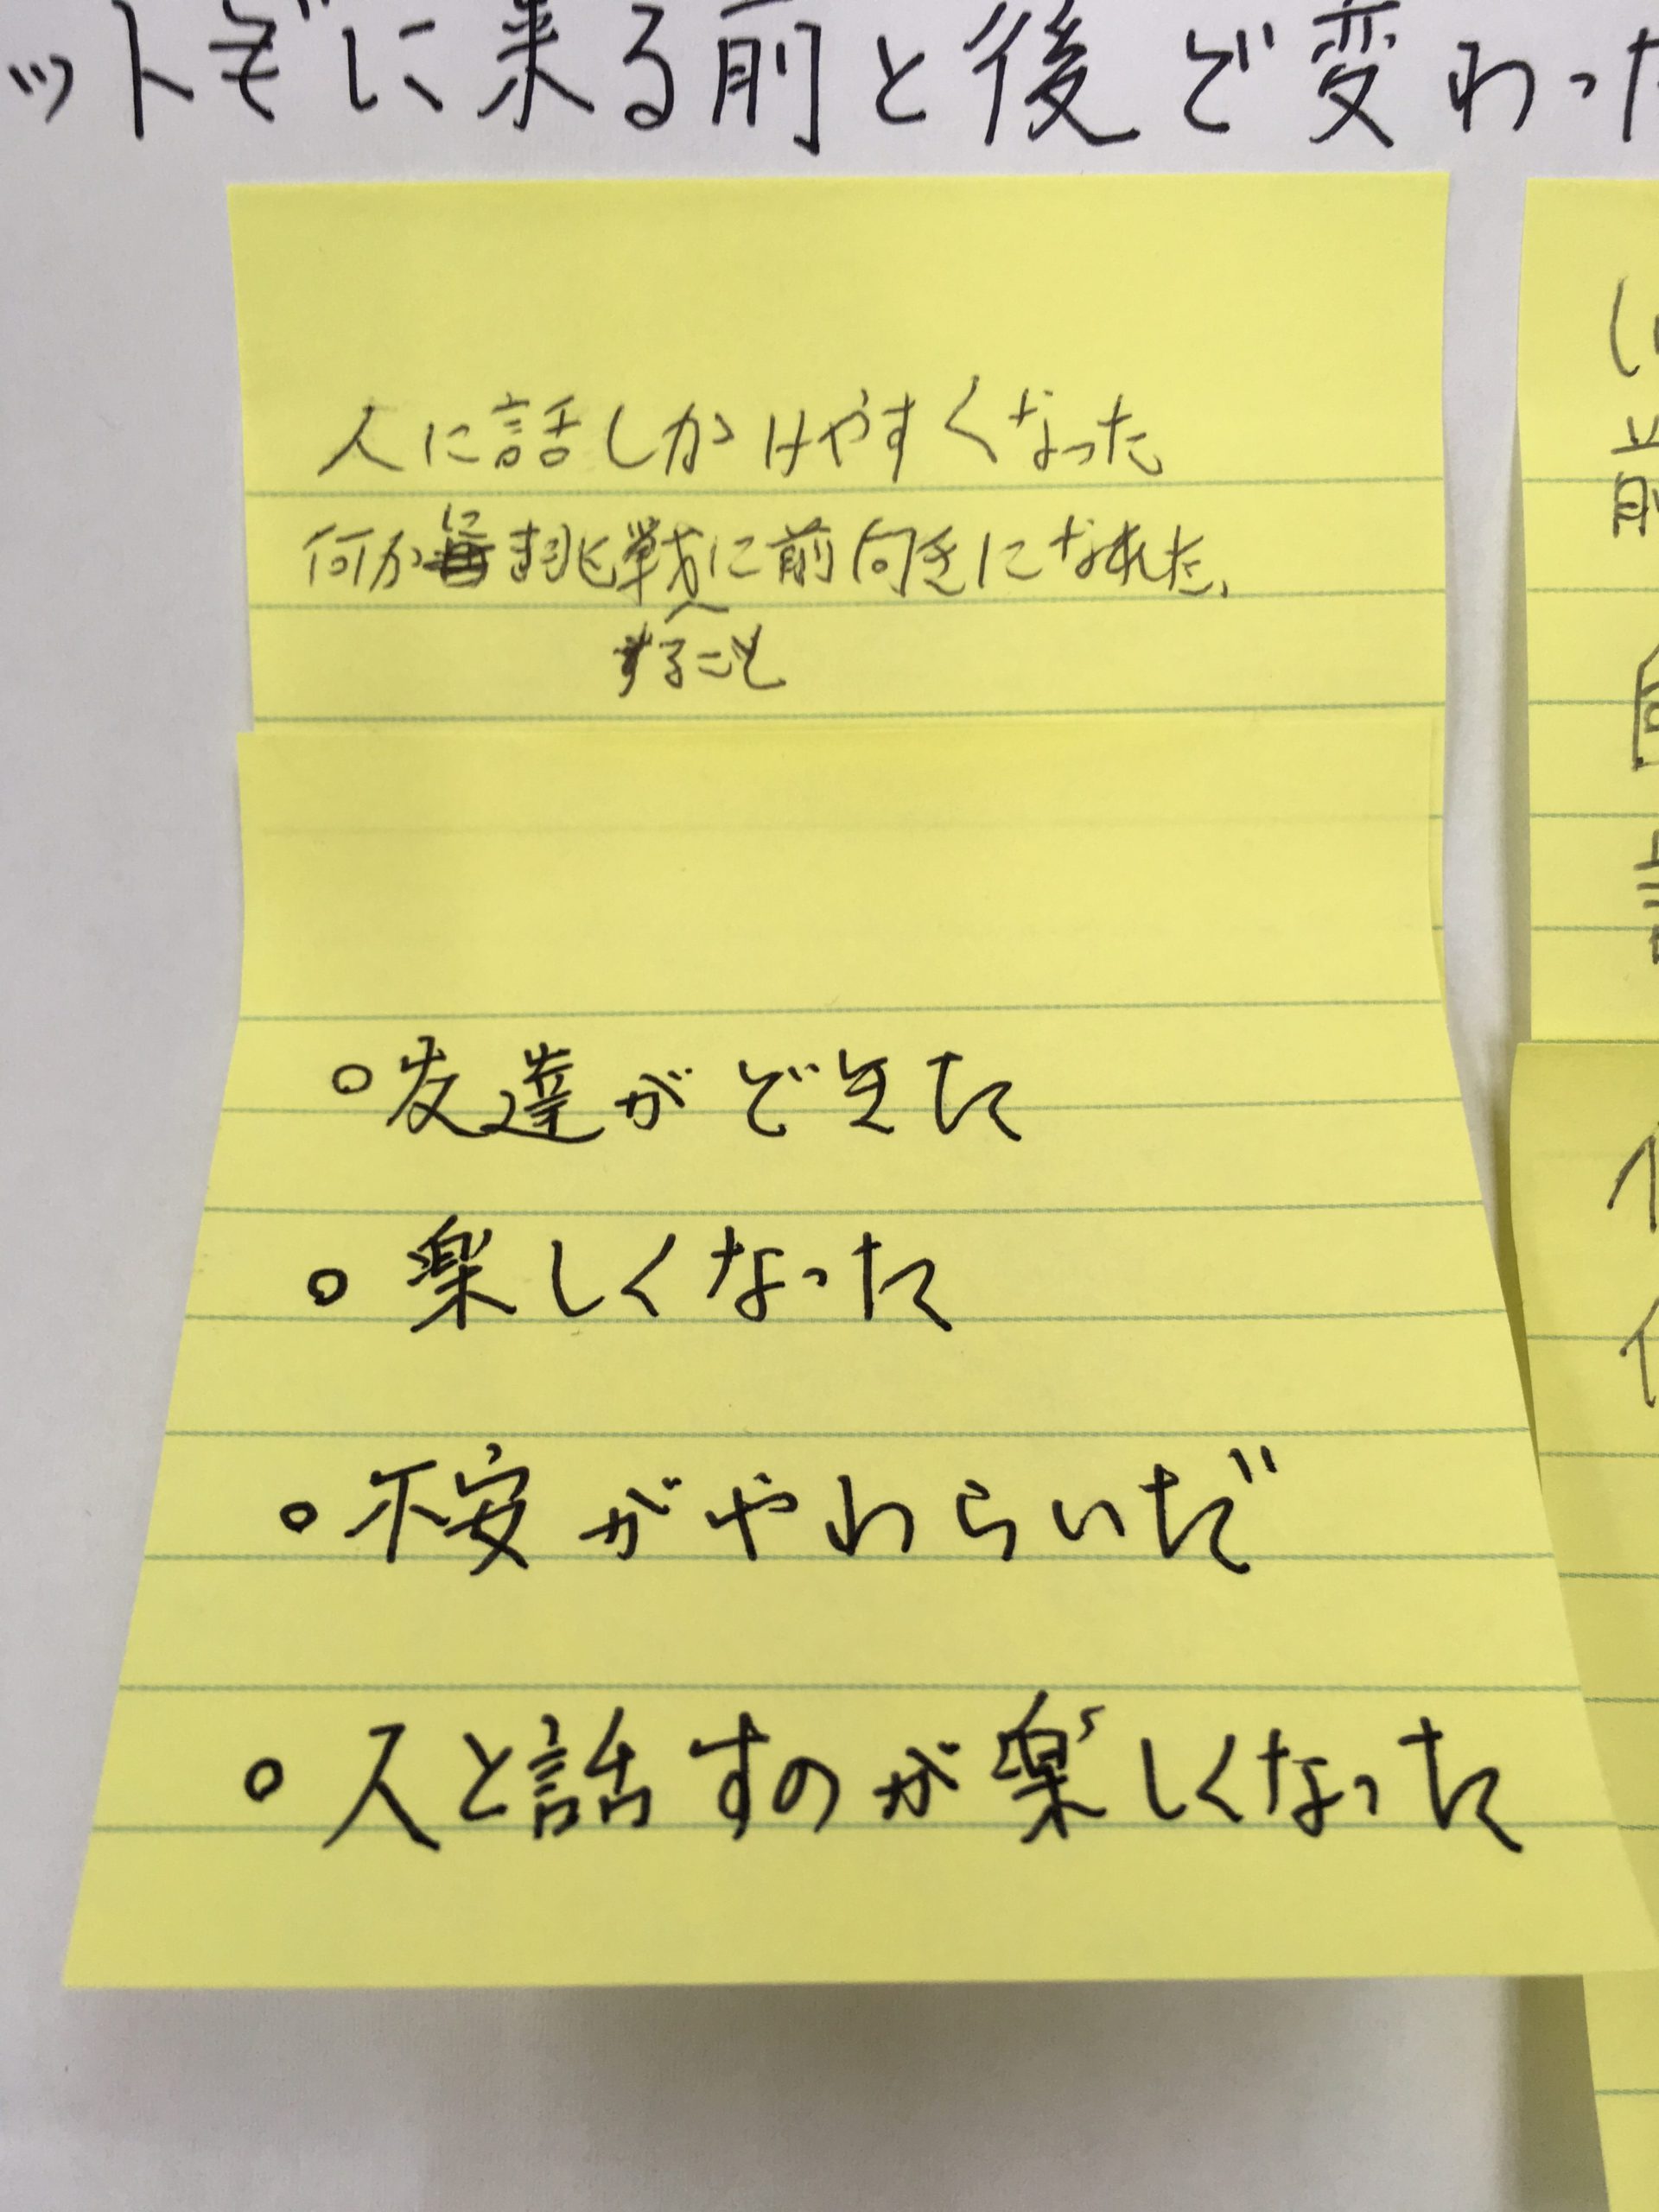 ットぎに来る前と後で変わった
人に話しかけやすくなった
何かに挑戦することに前向きになれた。
○友達ができた
○楽しくなった
○不安がやわらいだ
○人と話すのが楽しくなった